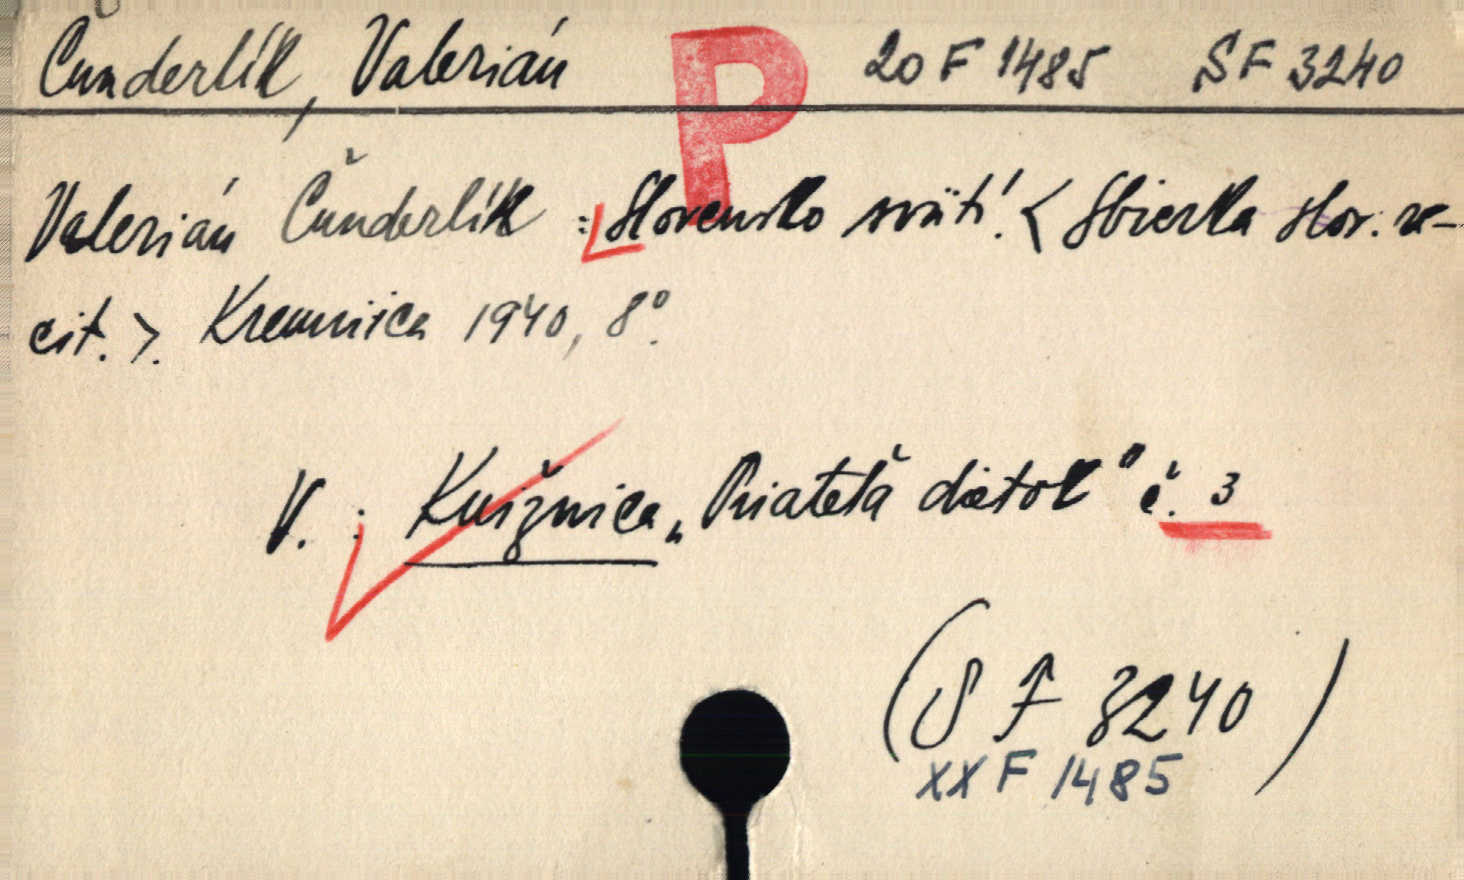 Čunderlík, Valerián P 20 F 1485 SF 3240
Valerián Čunderlík : Slovensko svätí. < Sbierka slov. re-
cit. >. Kremnica 1940, 8°.
V. : Knižnica „Priateľa dietok" č. 3
(S F 3240)
XX F 1485